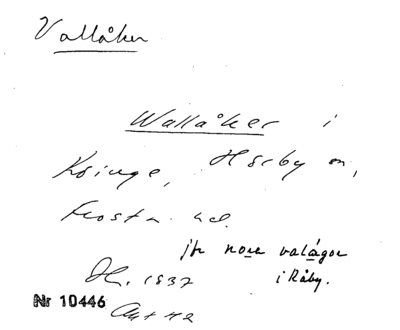 Vallåker
Wallåker i
Kvinge, Hörby sn,
Frosta hd.
jfr nore valågor
i Råby.
1837
Nr 10446